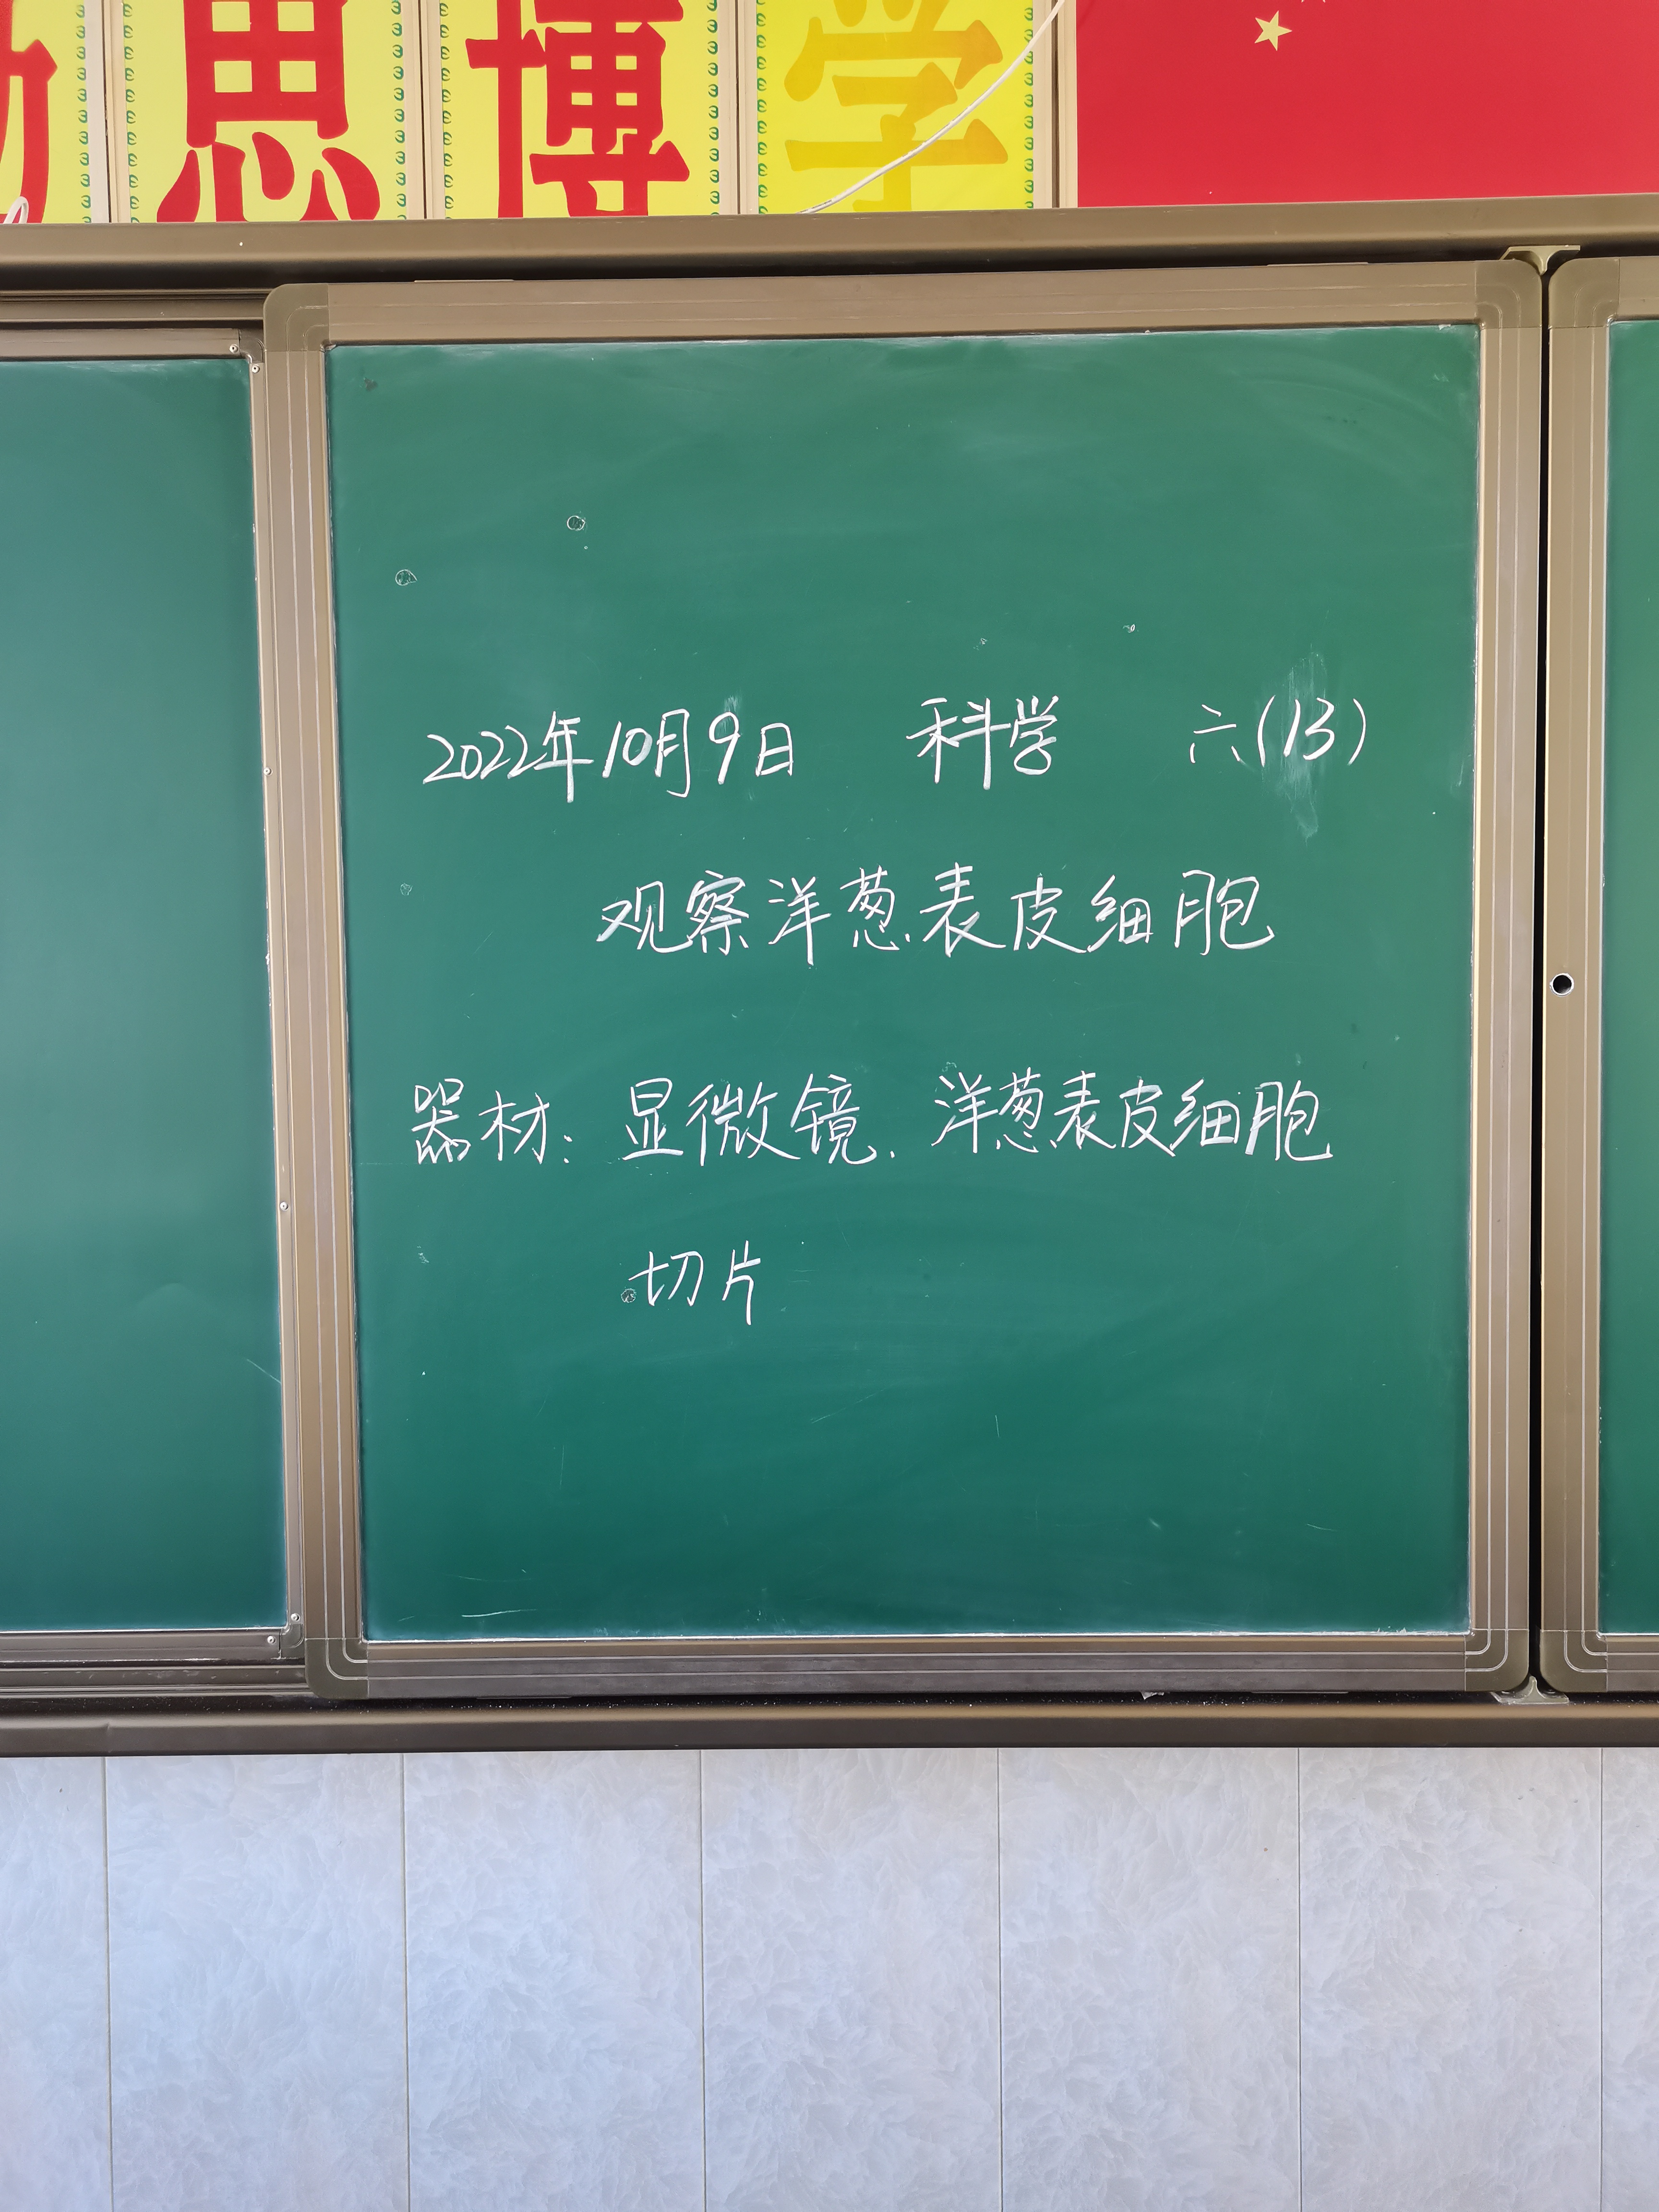 思博学
2022年10月9日 科学 六(13)
观察洋葱表皮细胞
器材：显微镜、洋葱表皮细胞
切片